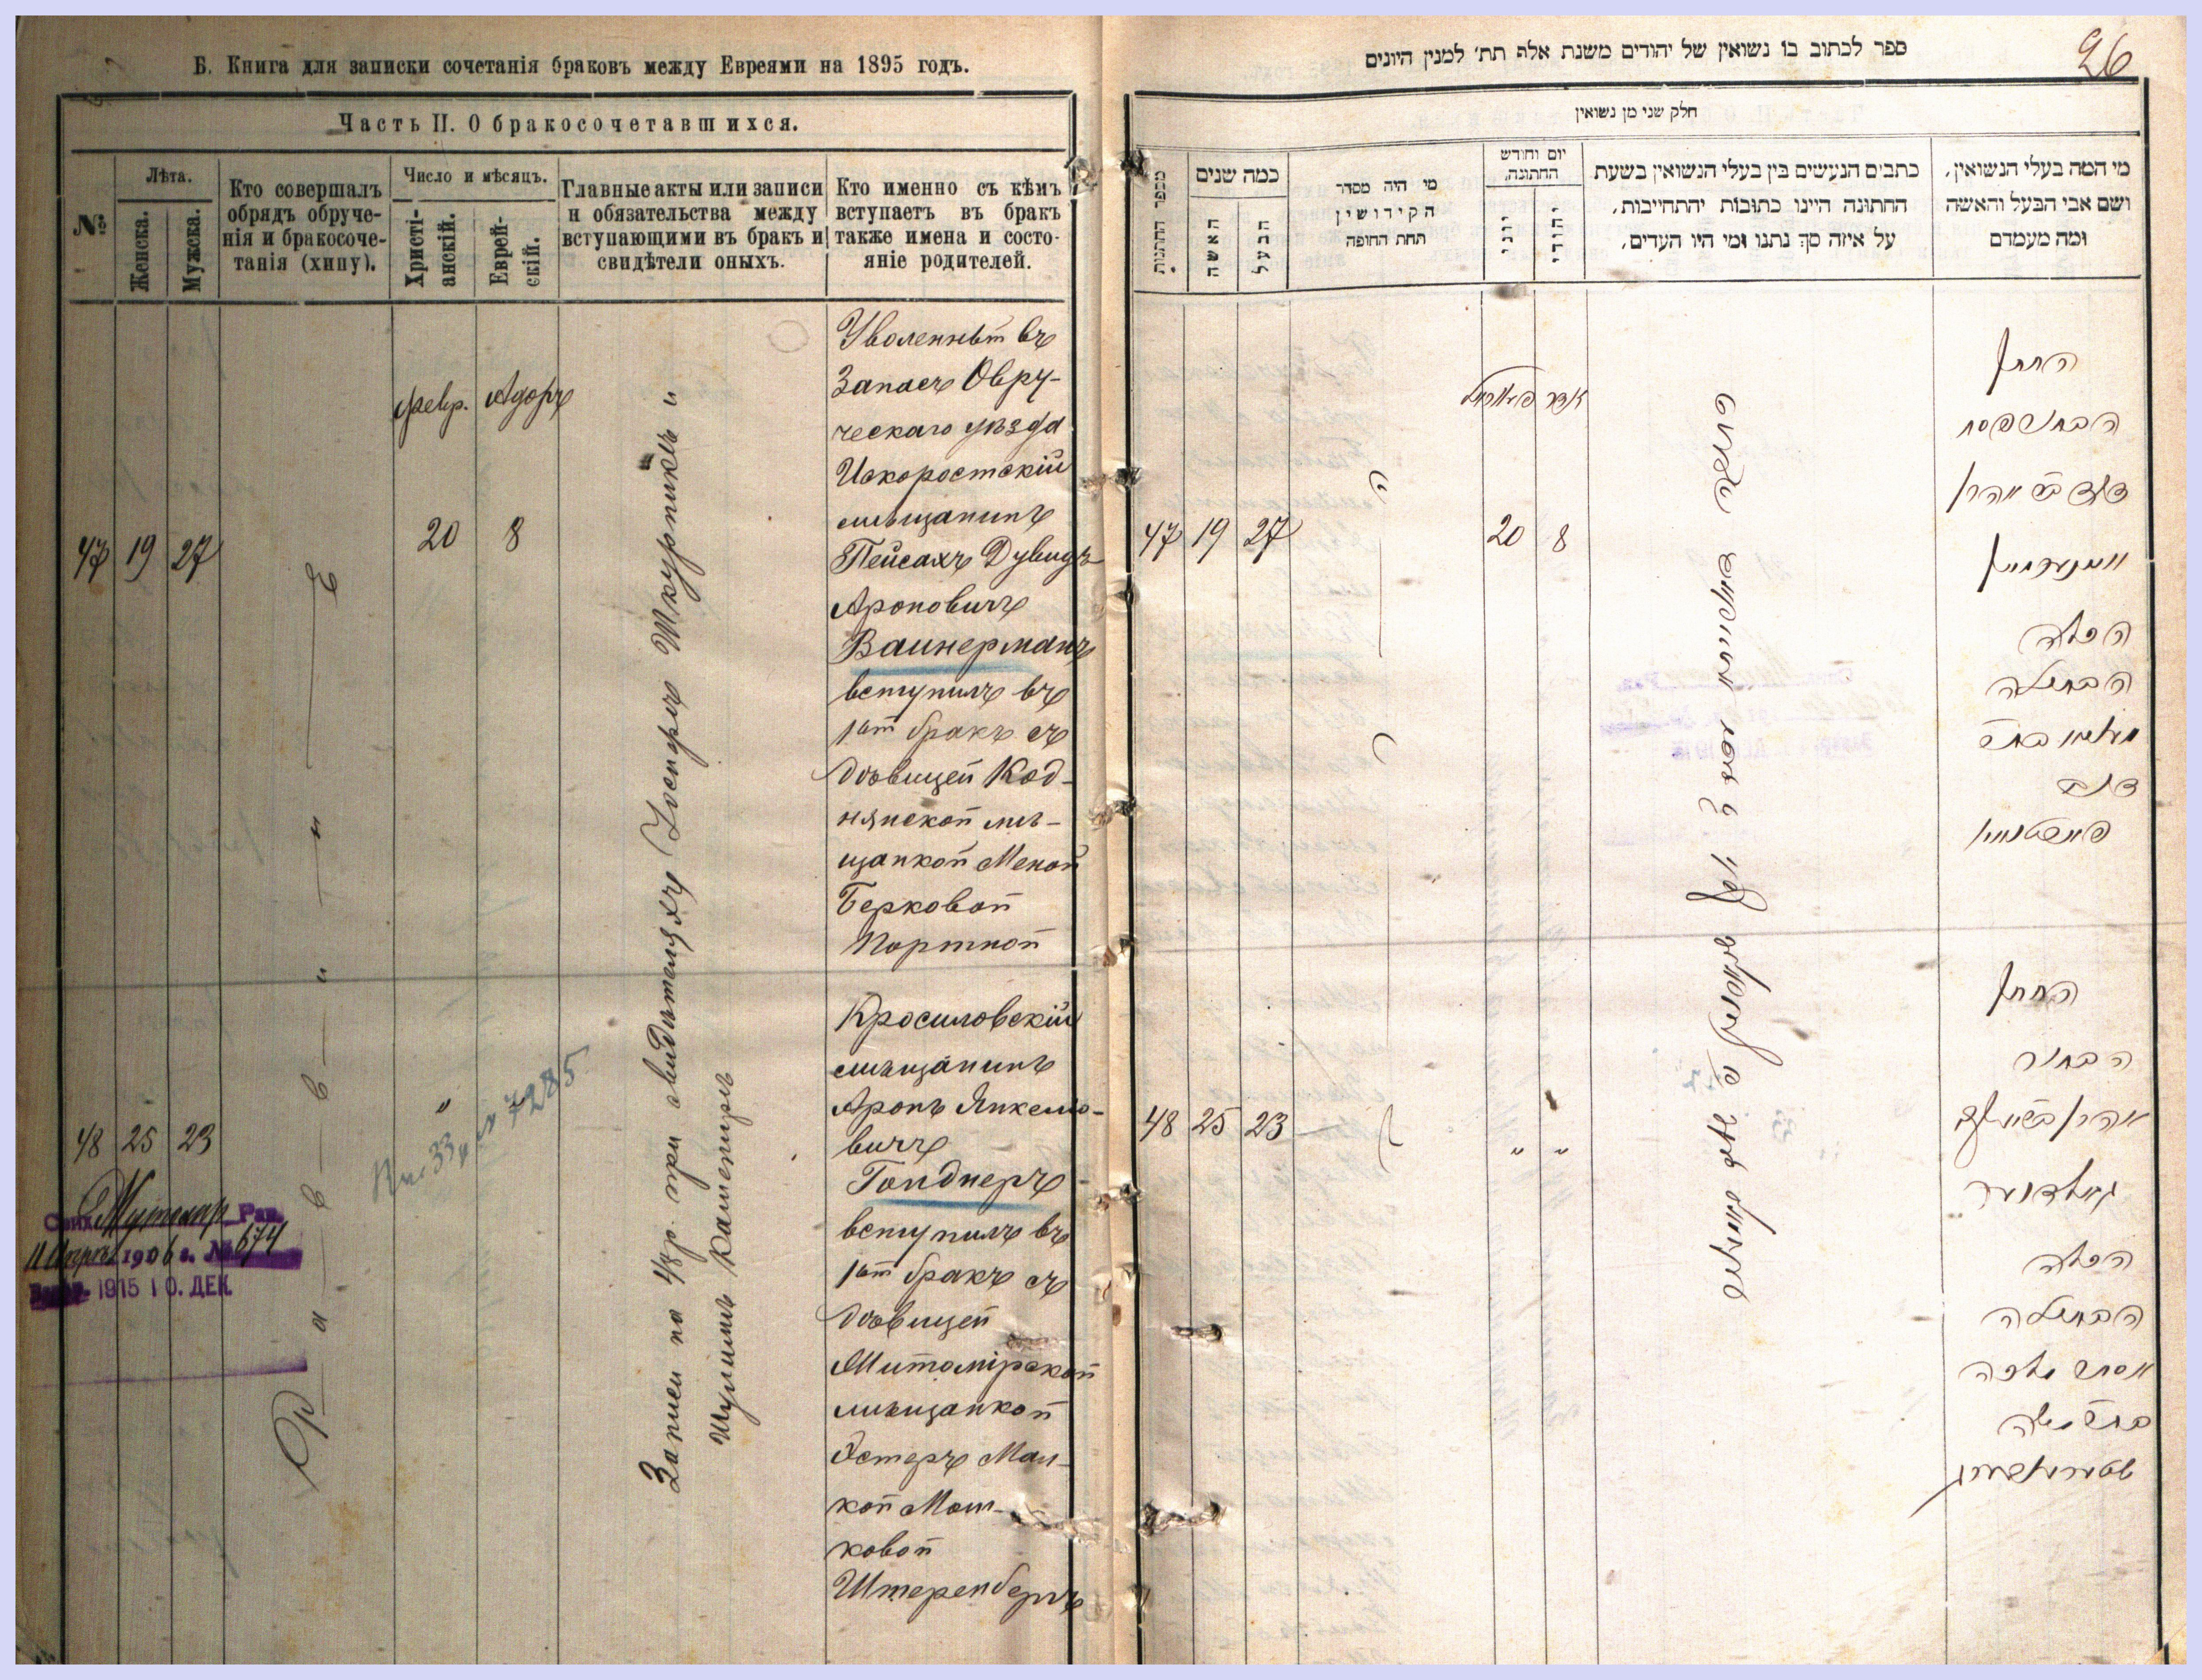 Б. Книга для записки сочетанія браковъ между Евреями на 1895 годъ.
Часть II. О бракосочетавшихся.
№
Лѣта.
Женска.
Мужска.
Кто совершалъ
обрядъ обруче-
нія и бракосоче-
танія (хипу).
Число и мѣсяцъ.
Христі-
анскій.
Еврей-
скій.
Главные акты или записи
и обязательства между
вступающими въ бракъ и
свидѣтели оныхъ.
Кто именно съ кѣмъ
вступаетъ въ бракъ
также имена и состо-
яніе родителей.
февр. Адоръ
47 19 27 20 8
Уволенный въ
Запасъ Овру-
ческаго уѣзда
Искоростскій
мѣщанинъ
Пейсахъ Дувидъ
Ароновичъ
Вайнерманъ
вступилъ въ
1ый бракъ съ
дѣвицей Код-
нянской мѣ-
щанкой Меной
Берковой
Портной
Записи по 48 р. при свидѣтеляхъ Іосифѣ Шкурникъ и
Шулимъ Камениръ
48 25 23 " "
№ 7285
Кросиловскій
мѣщанинъ
Аронъ Янкело-
вичъ
Голднеръ
вступилъ въ
1ый бракъ съ
дѣвицей
Житомірской
мѣщанкой
Эстеръ Мал-
кой Мош-
ковой
Штеренбергъ
Рав.
1906 г. № 674
1915 10. ДЕК.
96
ספר לכתוב בו נשואין של יהודים משנת אלף תת׳ למנין היונים
חלק שני מן נשואין
מספר החתונות
כמה שנים
האשה
הבעל
מי היה מסדר
הקידושין
תחת החופה
יום וחודש
החתונה,
יוני
יהודי
כתבים הנעשים בין בעלי הנשואין בשעת
החתונה היינו כתובות יהתחייבות,
על איזה סך נתנו ומי היו העדים,
מי המה בעלי הנשואין,
ושם אבי הבעל והאשה
ומה מעמדם
אדר
47 19 27 20 8
החתן
הבחור פסח
דוד ב״ר אהרן
וויינערמאן
הכלה
הבתולה
48 25 23 " "
החתן
הבחור
אהרן
גאלדנער
הכלה
הבתולה
אסתר מלכה
שטערענבערג